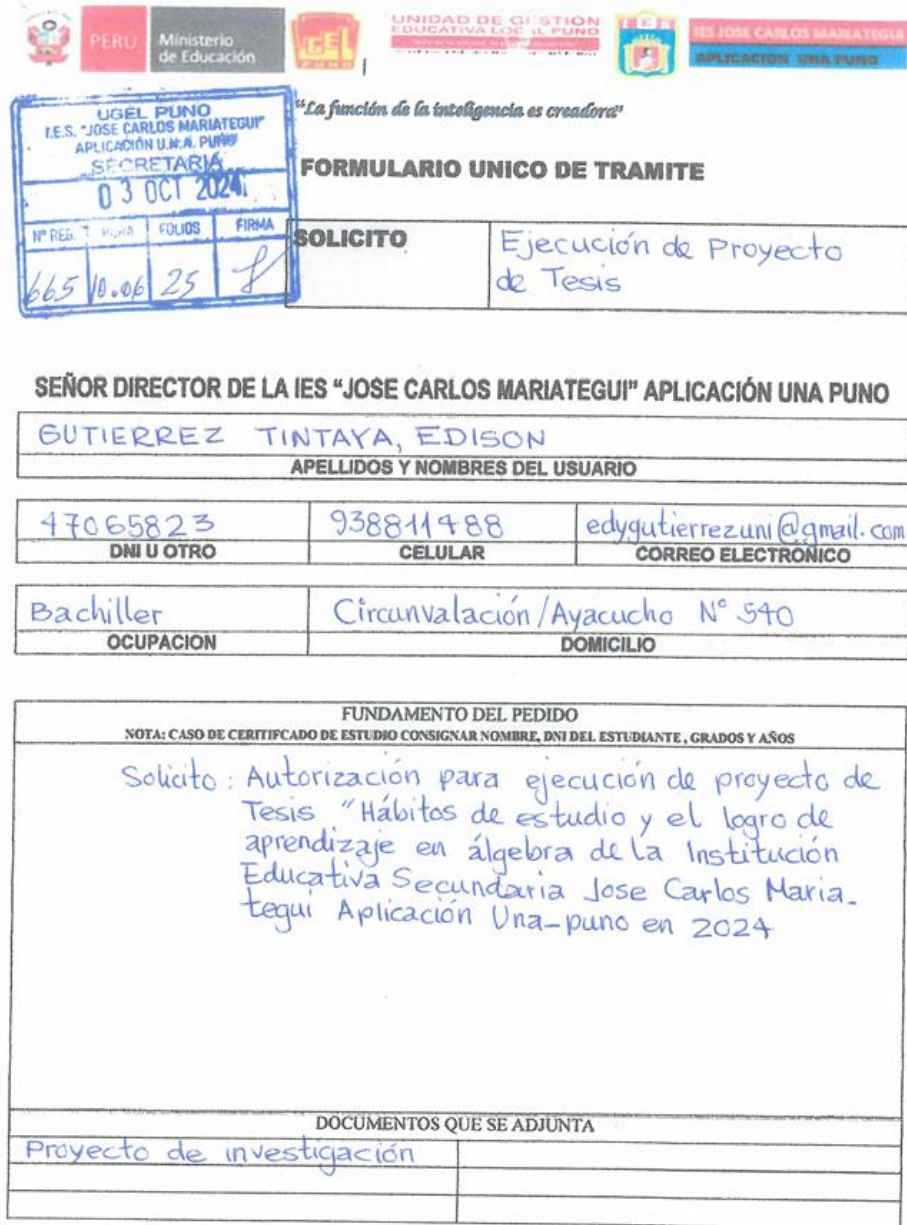 PERÚ
Ministerio
de Educación
UGEL
PUNO
UNIDAD DE GESTIÓN
EDUCATIVA LOCAL PUNO
I E S
IES JOSE CARLOS MARIATEGUI
APLICACION UNA PUNO
"La función de la inteligencia es creadora"
UGEL PUNO
I.E.S. "JOSE CARLOS MARIATEGUI"
APLICACIÓN U.N.A. PUNO
SECRETARIA
03 OCT 2024
Nº REG. HORA FOLIOS FIRMA
665 10.06 25
FORMULARIO UNICO DE TRAMITE
SOLICITO
Ejecución de Proyecto
de Tesis
SEÑOR DIRECTOR DE LA IES "JOSE CARLOS MARIATEGUI" APLICACIÓN UNA PUNO
GUTIERREZ TINTAYA, EDISON
APELLIDOS Y NOMBRES DEL USUARIO
47065823 938811488 edygutierrezuni@gmail.com
DNI U OTRO CELULAR CORREO ELECTRÓNICO
Bachiller Circunvalación/Ayacucho N° 540
OCUPACION DOMICILIO
FUNDAMENTO DEL PEDIDO
NOTA: CASO DE CERITIFCADO DE ESTUDIO CONSIGNAR NOMBRE, DNI DEL ESTUDIANTE , GRADOS Y AÑOS
Solicito : Autorización para ejecución de proyecto de
Tesis "Hábitos de estudio y el logro de
aprendizaje en álgebra de la Institución
Educativa Secundaria Jose Carlos Maria-
tegui Aplicación Una-puno en 2024
DOCUMENTOS QUE SE ADJUNTA
Proyecto de investigación